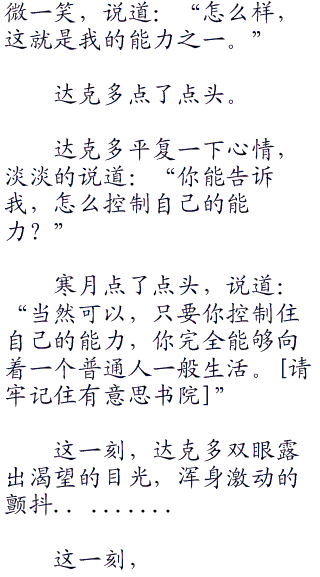 微一笑，说道：“怎么样，
这就是我的能力之一。”
达克多点了点头。
达克多平复一下心情，
淡淡的说道：“你能告诉
我，怎么控制自己的能
力？”
寒月点了点头，说道：
“当然可以，只要你控制住
自己的能力，你完全能够向
着一个普通人一般生活。[请
牢记住有意思书院]”
这一刻，达克多双眼露
出渴望的目光，浑身激动的
颤抖．．．．．．．．．
这一刻，